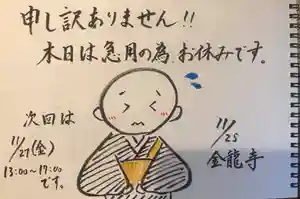 申し訳ありません!!
本日は急用の為、お休みです。
次回は
11/27(金)
13:00〜17:00
です。
11/25
金龍寺